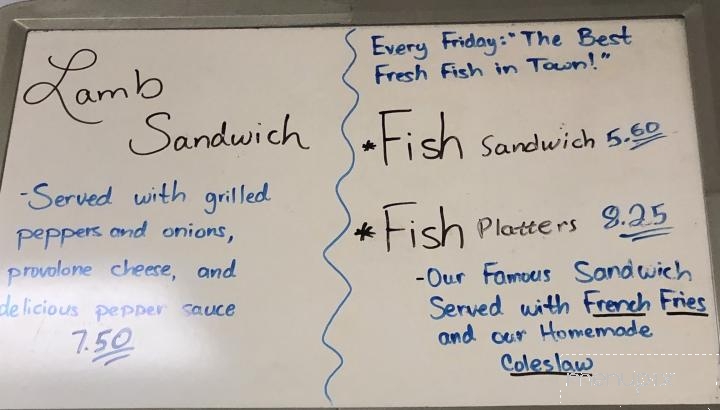 Lamb
Sandwich
-Served with grilled
peppers and onions,
provolone cheese, and
delicious pepper sauce
7.50
Every Friday:"The Best
Fresh Fish in Town!"
*Fish Sandwich 5.60
*Fish Platters 8.25
-Our Famous Sandwich
Served with French Fries
and our Homemade
Coleslaw